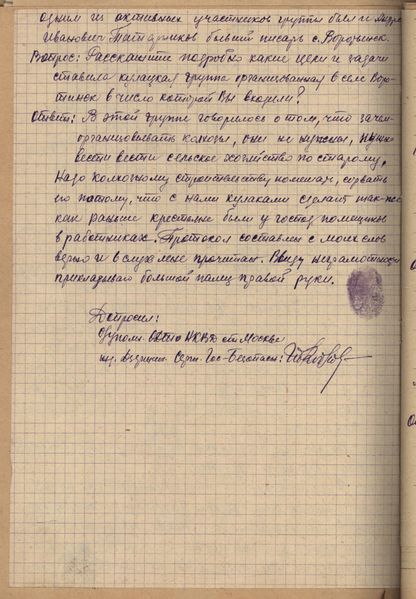 одним из активных участников группы был и Андре
Иванович Татарников бывший писарь с. Воротынск.
Вопрос: Расскажите подробно какие цели и задачи
ставила кулацкая группа организованная в селе Воро-
тынск в число которой Вы входили?
Ответ: В этой группе говорилось о том, что зачем
организовывать колхозы, они не нужны, нужно
вести вести сельское хозяйство по старому,
Надо колхозному строительству помешать, сорвать
его потому, что с нами кулаками сделают так-же
как раньше крестьяне были у господ помещиков
в работниках. Протокол составлен с моих слов
верно и в слух мне прочитан. Ввиду неграмотности
прикладываю большой палец правой руки.
Допросил:
НКВД от Москвы
Серж. Гос-Безопасн: